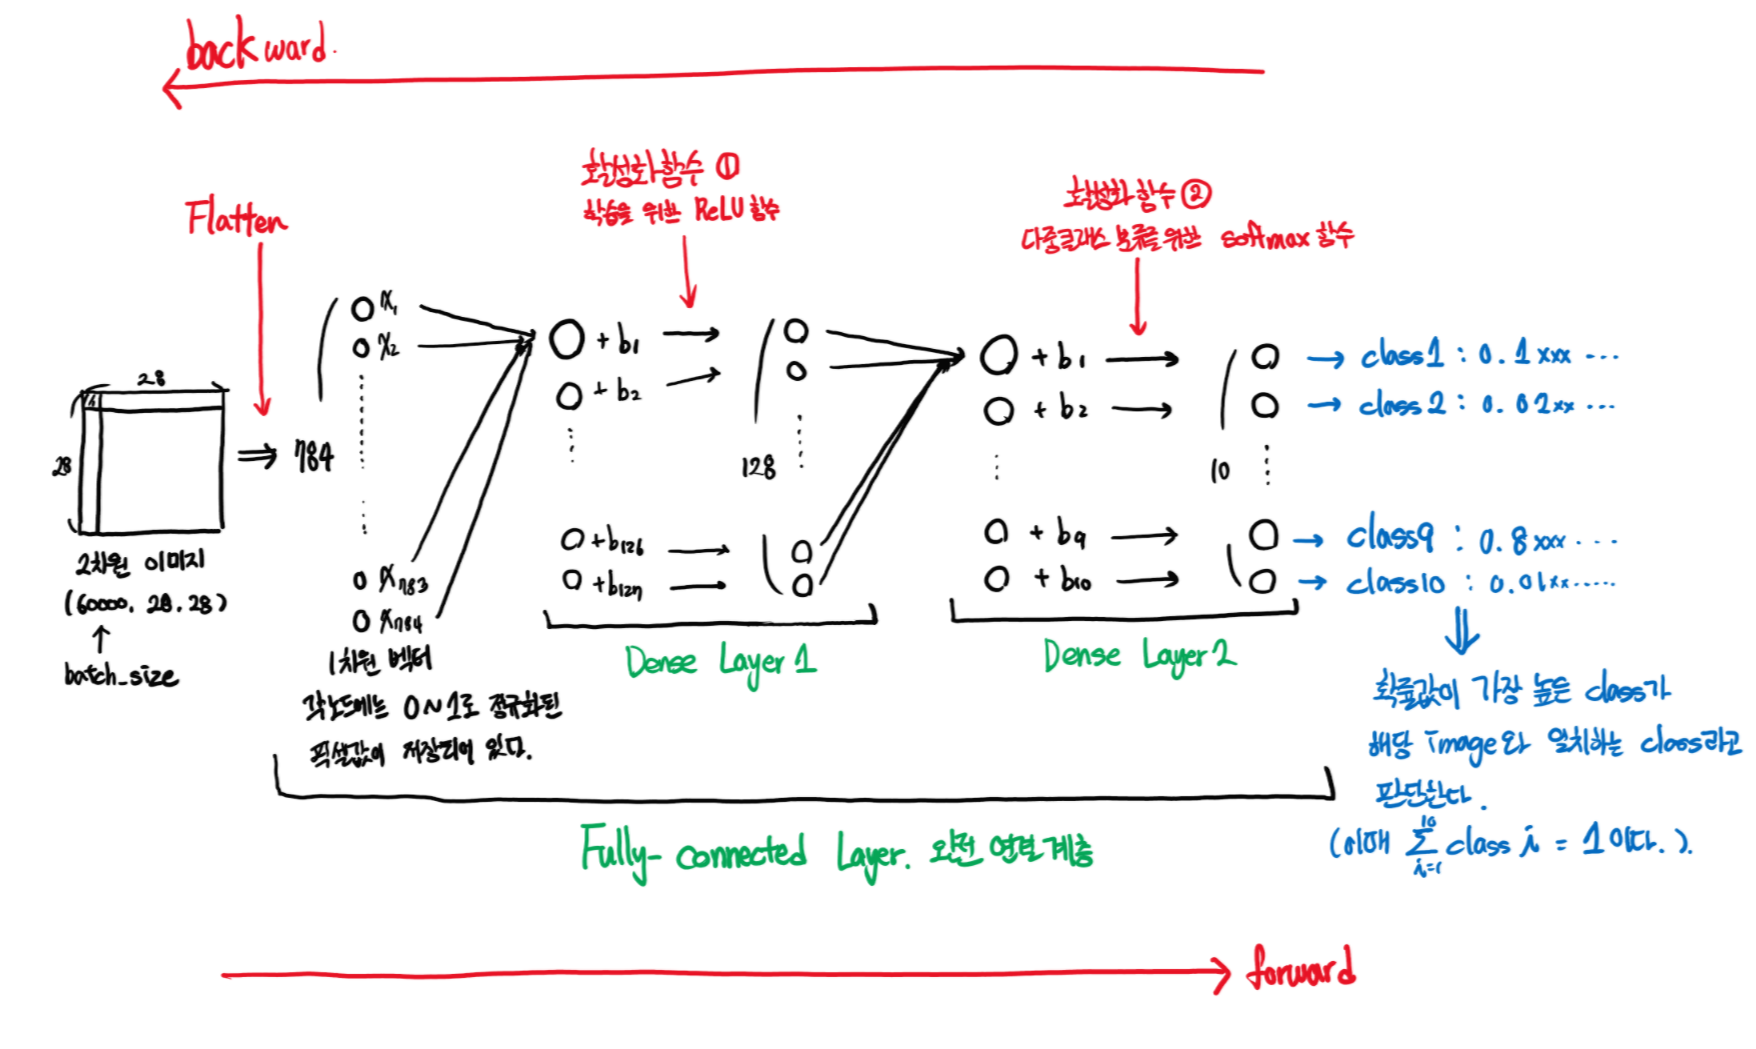 backward.
활성화함수 ①
학습을 위한 ReLU 함수
활성화 함수 ②
다중클래스 분류를 위한 softmax 함수
Flatten
28
28
2차원 이미지
(60000, 28, 28)
↑
batch_size
⇒ 784
x₁
x₂
x₇₈₃
x₇₈₄
1차원 벡터
각 노드에는 0~1로 정규화된
픽셀값이 저장되어 있다.
+ b₁
+ b₂
+b₁₂₆
+b₁₂₇
128
Dense Layer 1
+ b₁
+ b₂
+ b₉
+ b₁₀
10
Dense Layer 2
→ class1 : 0.1xxx ...
→ class2 : 0.02xx ...
→ class9 : 0.8xxx ...
→ class10 : 0.01xx.....
확률값이 가장 높은 class가
해당 image와 일치하는 class라고
판단한다.
(이때 10∑i=1 class i = 1이다.).
Fully-connected Layer. 완전 연결 계층
forward